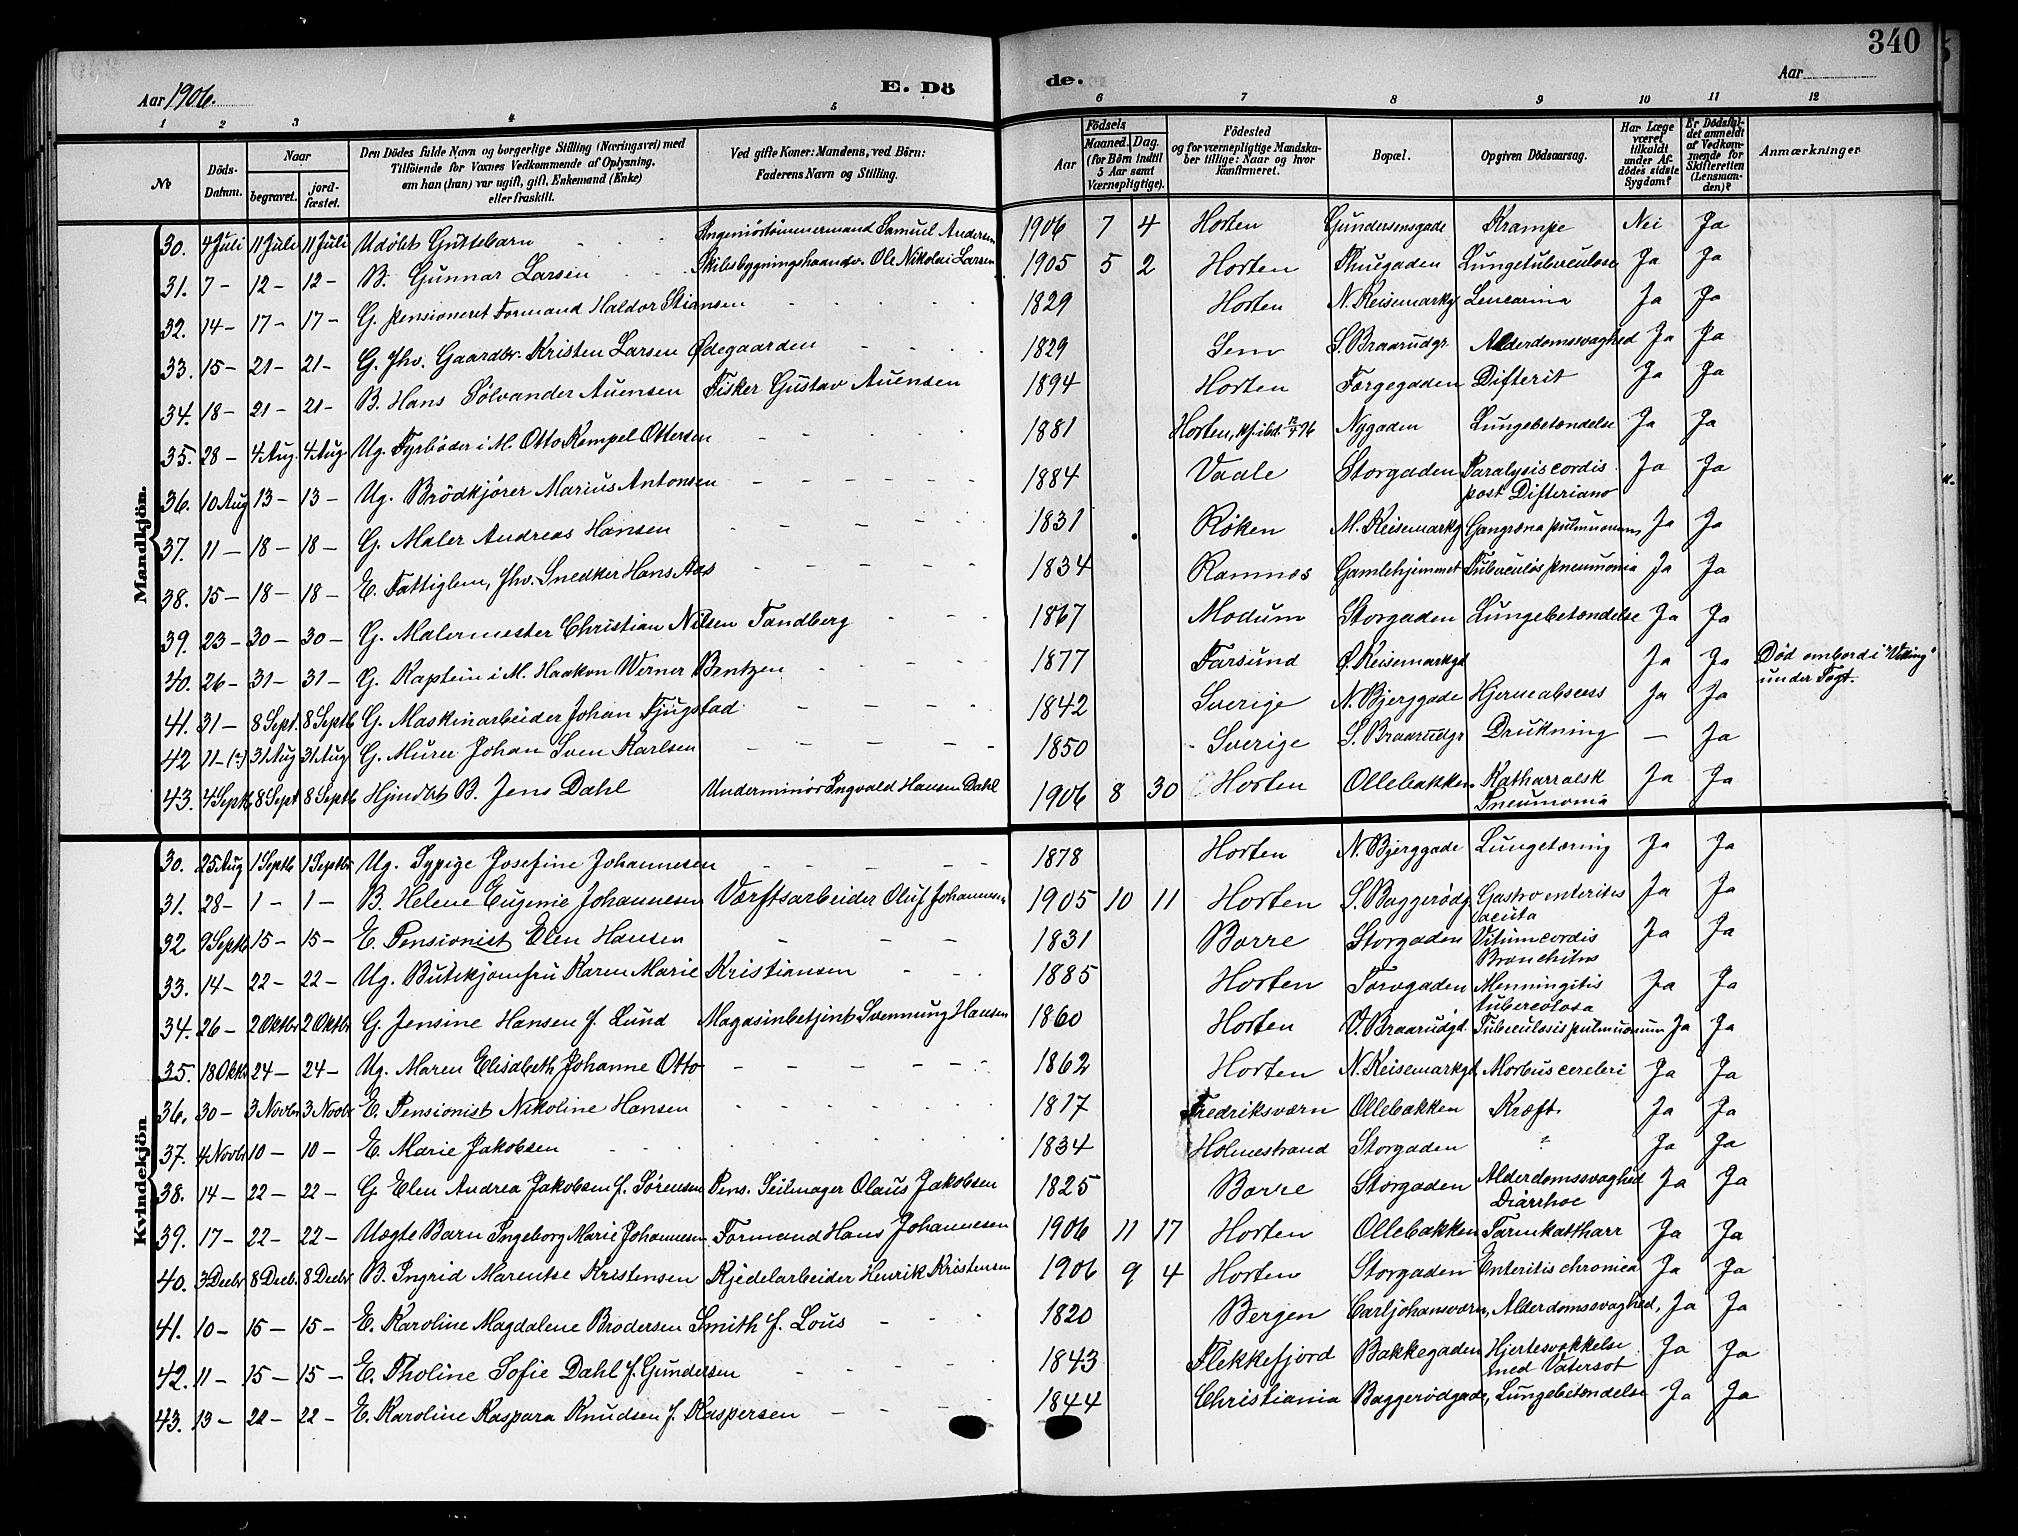 340
Aar 1906.
E. Dö de.
Aar
1 2 3 4 5 6 7 8 9 10 11 12
No
Döds-Datum.
Naar
begravet.
jord-fæstet.
Den Dödes fulde Navn og borgerlige Stilling (Næringsvei) med Tilföiende for Voxnes Vedkommende af Oplysning, om han (hun) var ugift, gift, Enkemand (Enke) eller fraskilt.
Ved gifte Koner: Mandens, ved Börn: Faderens Navn og Stilling.
Födsels
Aar
Maaned. Dag.
(for Börn indtil 5 Aar samt Værnepligtige).
Födested og for værnepligtige Mandskaber tillige: Naar og hvor konfirmeret.
Bopæl.
Opgiven Dödsaarsag.
Har Læge været tilkaldt under Afdödes sidste Sygdom?
Er Dödsfaldet anmeldt af Vedkommende for Skifteretten (Lensmanden)?
Anmærkninger
Mandkjön.
30. 4 Juli 11 Juli 11 Juli Udöbt Guttebarn Ingeniörtömmermand Samuel Andersen 1906 7 4 Horten Gundersensgade Krampe Nei Ja
31. 7 – 12 – 12 – B. Gunnar Larsen Skibsbygningshaandv. Ole Nikolai Larsen 1905 5 2 Horten Thuegaden Lungetuberculose Ja Ja
32. 14 – 17 – 17 – G. pensioneret Formand Haldor Stiansen 1829 Horten N. Keisemarkg Ja Ja
33. 15 – 21 – 21 – G. fhv. Gaardbr. Kristen Larsen Ødegaarden 1829 Sem S. Braarudgr. Alderdomssvaghed Ja Ja
34. 18 – 21 – 21 – B. Hans Sölvander Auensen Fisker Gustav Auensen 1894 Horten Torgegaden Difterit Ja Ja
35. 28 – 4 Aug. 4 Aug. Ug. Fyrböder i M. Otto Kempel Ottersen 1881 Horten, kf. ibd. 96 Nygaden Lungebetændelse Ja Ja
36. 10 Aug 13 – 13 – Ug. Brödkjörer Marius Antonsen 1884 Vaale Storgaden Paralysis cordis post Difteriano Ja Ja
37. 11 – 18 – 18 – G. Maler Andreas Hansen 1831 Röken M. Keisemarkg Gangræna pulmuonum Ja Ja
38. 15 – 18 – 18 – E. Fattiglem, fhv. Snedker Hans Aas 1834 Ramnes Gamlehjemmet Tuberculös pneumonia Ja Ja
39. 23 – 30 – 30 – G. Malermester Christian Nilsen Tandberg 1867 Modum Storgaden Lungebetændelse Ja Ja
40. 26 – 31 – 31 – G. Kaptein i M. Haakon Werner Bentzen 1877 Farsund Ø. Keisemarkgd Ja Ja Död ombord i "Viking" under Togt.
41. 31 – 8 Sept. 8 Septb G. Maskinarbeider Johan Fjugstad 1842 Sverige N. Bjerggade Hjerneabscess Ja Ja
42 11 – (?) 31 Aug 31 Aug G. Murer Johan Sven Karlsen 1850 Sverige S. Braarudgr Drukning — Ja
43. 4 Septb 8 Sept 8 Septb Hjmdbt B. Jens Dahl Underminör Ingvald Hansen Dahl 1906 8 30 Horten Ollebakken Katharralsk Pneumonia Ja Ja
Kvindekjön
30. 25 Aug 1 Septb 1 Septbr Ug. Sypige Josefine Johannesen 1878 Horten N. Bjerggade Lungetæring Ja Ja
31. 28 – 1 – 1 – B. Helene Eugenie Johannesen Værftsarbeider Oluf Johannesen 1905 10 11 Horten S. Baggerödg Gastro enterites acuta Ja Ja
32 9 Septb 15 – 15 – E. Pensionist Elen Hansen 1831 Borre Storgaden Vitium cordis Bronchitus Ja Ja
33. 14 – 22 – 22 – Ug. Butikjomfru Karen Marie Kristiansen 1885 Horten Torvgaden Menningitis tuberculosa Ja Ja
34. 26 – 2 Oktbr 2 Oktbr G. Jensine Hansen f. Lund Magasinbetjent Svennung Hansen 1860 Horten V. Braarudgd. Tuberculosis pulmuonum Ja Ja
35. 18 Oktb 24 – 24 – Ug. Maren Elisabeth Johanne Otto 1862 Horten N. Keisemarkgd Morbus cereberi Ja Ja
36. 30 – 3 Novbr 3 Novbr E. Pensionist Nikoline Hansen 1817 Fredriksværn Ollebakken Kræft. Ja Ja
37. 4 Novbr 10 – 10 – E. Marie Jakobsen 1834 Holmestrand Storgaden ? Ja Ja
38. 14 – 22 – 22 – G. Elen Andrea Jakobsen f. Sörensen Pens. Seilmager Olaus Jakobsen 1825 Borre Storgaden Alderdomssvaghed Diarrhoe Ja Ja
39. 17 – 22 – 22 – Uægte Barn Ingeborg Marie Johannesen Formand Hans Johannesen 1906 11 17 Horten Ollebakken Tarmkattharr Ja Ja
40. 3 Decbr 8 Decb. 8 Decbr B. Ingrid Marentse Kristensen Kjedelarbeider Henrik Kristensen 1906 9 4 Horten Storgaden Enteritis chronica Ja Ja
41. 10 – 15 – 15 – E. Karoline Magdalene Brodersen Smith f. Lous 1820 Bergen Carljohansværn, Alderdomssvaghed, Ja Ja
42. 11 – 15 – 15 – E. Tholine Sofie Dahl f. Gundersen 1843 Flekkefjord Bakkegaden Hjertesvækkelse med Vatersot Ja Ja
43. 13 – 22 – 22 – E. Karoline Kaspara Knudsen f. Kaspersen 1844 Christiania Baggerödgade, Lungebetændelse Ja Ja